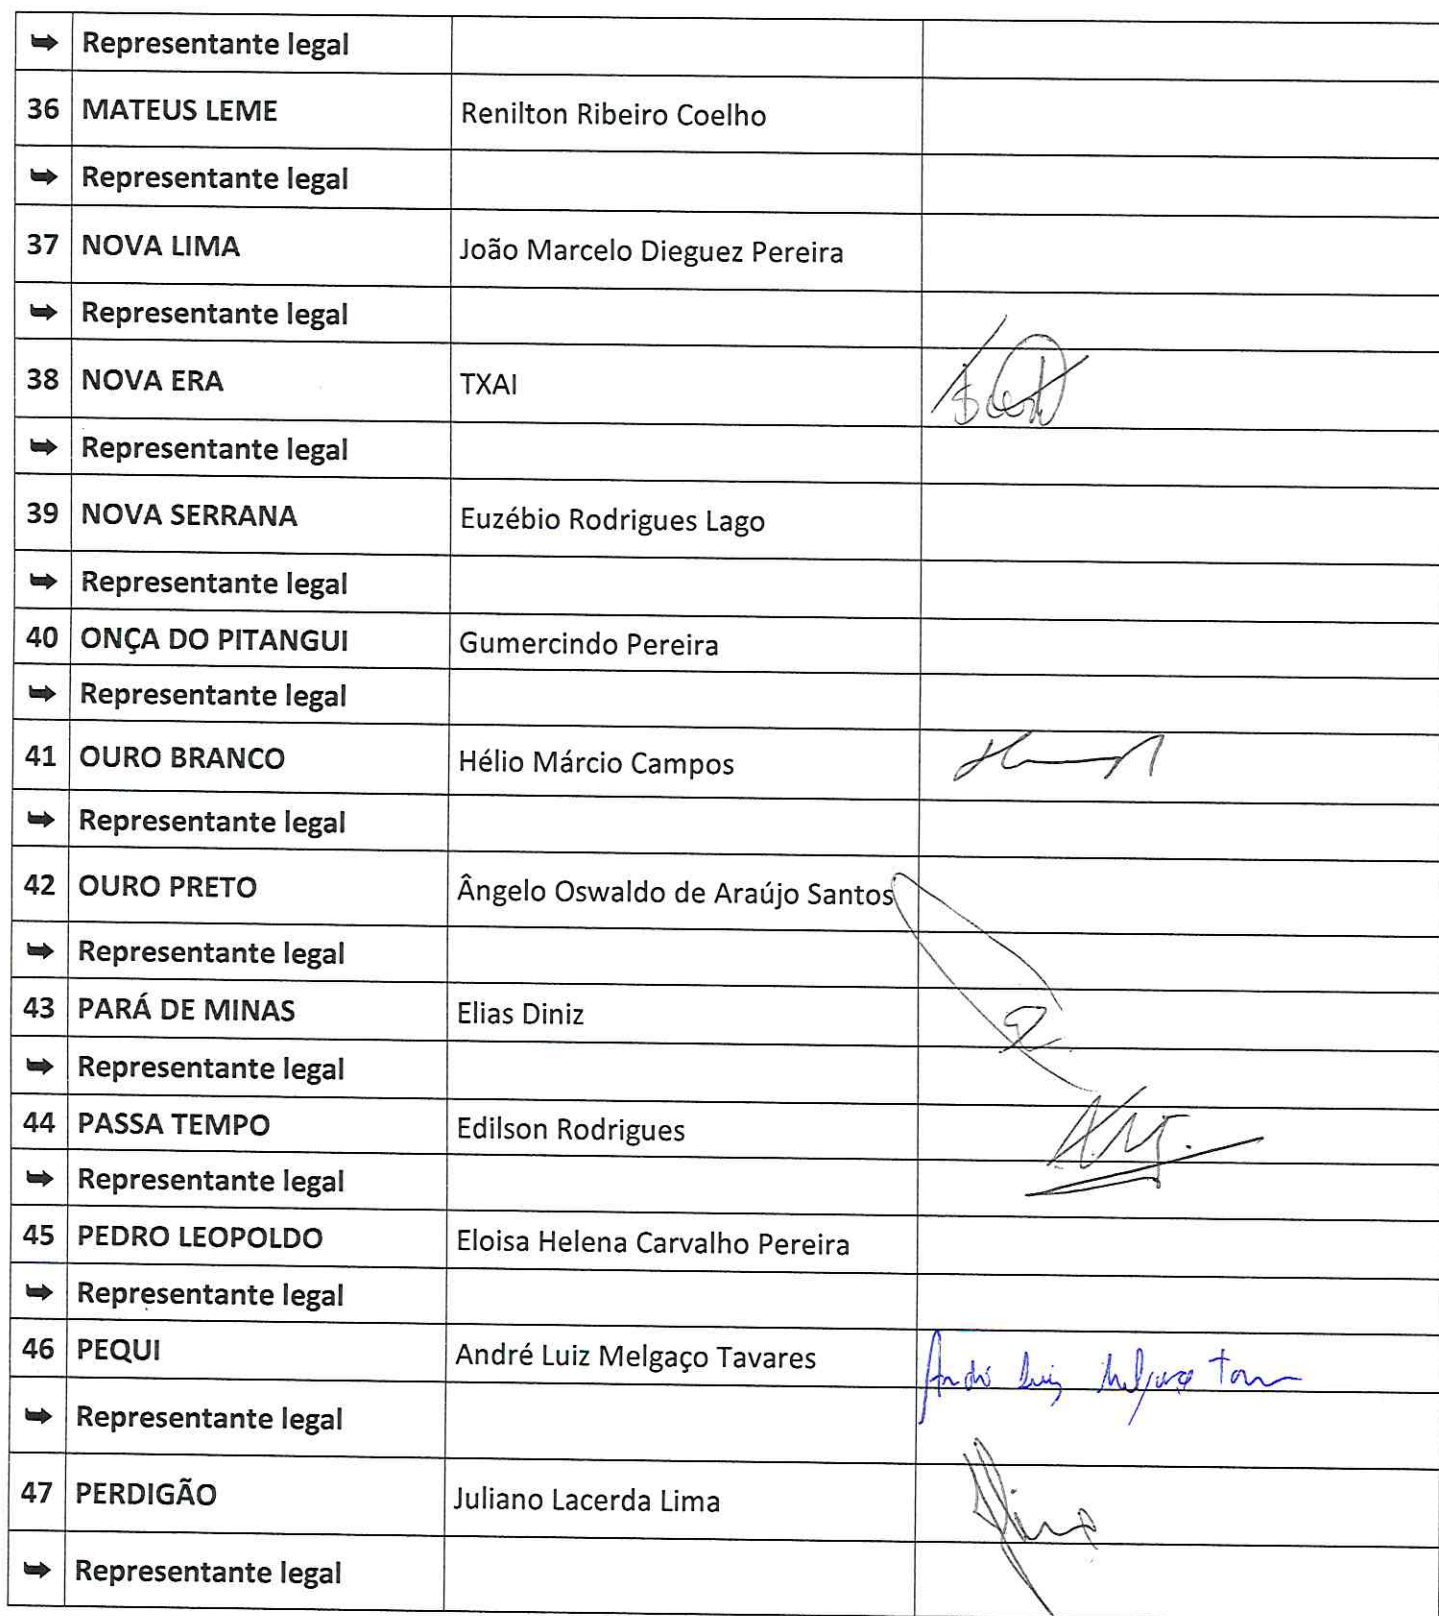 ➥ Representante legal
36 MATEUS LEME Renilton Ribeiro Coelho
➥ Representante legal
37 NOVA LIMA João Marcelo Dieguez Pereira
➥ Representante legal
38 NOVA ERA TXAI
➥ Representante legal
39 NOVA SERRANA Euzébio Rodrigues Lago
➥ Representante legal
40 ONÇA DO PITANGUI Gumercindo Pereira
➥ Representante legal
41 OURO BRANCO Hélio Márcio Campos
➥ Representante legal
42 OURO PRETO Ângelo Oswaldo de Araújo Santos
➥ Representante legal
43 PARÁ DE MINAS Elias Diniz
➥ Representante legal
44 PASSA TEMPO Edilson Rodrigues
➥ Representante legal
45 PEDRO LEOPOLDO Eloisa Helena Carvalho Pereira
➥ Representante legal
46 PEQUI André Luiz Melgaço Tavares André Luiz Melgaço
➥ Representante legal
47 PERDIGÃO Juliano Lacerda Lima
➥ Representante legal